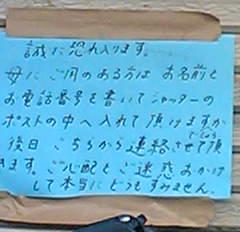 誠に恐れ入ります。
母にご用のある方は お名前と
お電話番号を書いてシャッターの
ポストの中へ入れて頂けますか
後日こちらから連絡させて頂
きます。ご心配とご迷惑おかけ
して本当にどうもすみません。